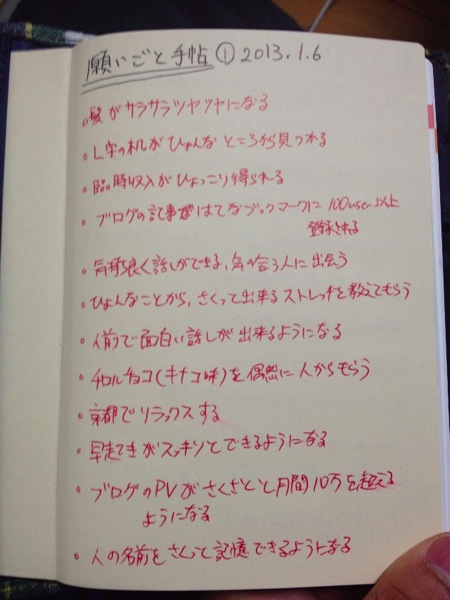 願いごと手帖 ① 2013.1.6
。髪がサラサラツヤツヤになる
。L字の机がひょんなところから見つかる
。臨時収入がひょっこり得られる
。ブログの記事がはてなブックマークに 100user以上
登録される
。気持良く話しができる、気の合う人に出会う
。ひょんなことから、さくって出来るストレッチを教えてもらう
。人前で面白い話しが出来るようになる
。チロルチョコ(キナコ味)を偶然に人からもらう
。京都でリラックスする
。早起きがスッキリとできるようになる
。ブログのPVがさくさくと月間10万を超える
ようになる
。人の名前をさくっと記憶できるようになる